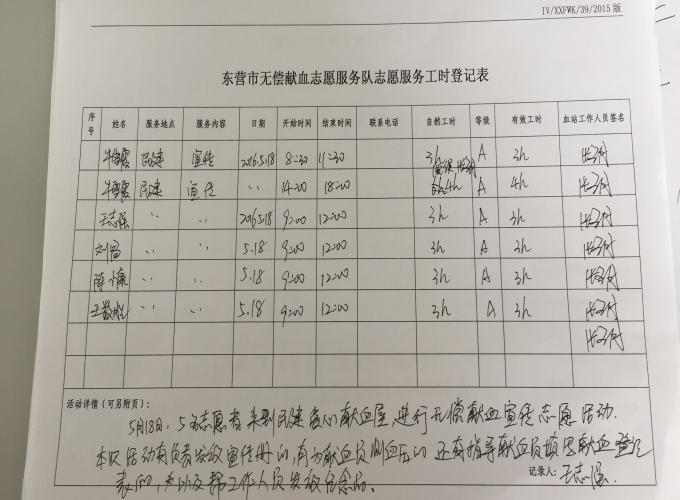 IV/XXFWK/39/2015 版
东营市无偿献血志愿服务队志愿服务工时登记表
序号 姓名 服务地点 服务内容 日期 开始时间 结束时间 联系电话 自然工时 等级 有效工时 血站工作人员签名
民建 宣传 2016.5.18 8:30 11:30 3h A 3h
民建 宣传 〃 14:00 18:00 4h A 4h
王志强 〃 〃 2016.5.18 9:00 12:00 3h A 3h
〃 〃 5.18 9:00 12:00 3h A 3h
〃 〃 5.18 9:00 12:00 3h A 3h
〃 〃 5.18 9:00 12:00 3h A 3h
活动详情(可另附页):
5月18日,5名志愿者来到民建爱心献血屋,进行无偿献血宣传志愿活动.
本次活动有负责发放宣传册的,有为献血员测血压的,还有指导献血员填写献血登记
表的,以及帮工作人员发放纪念品。
记录人:王志强